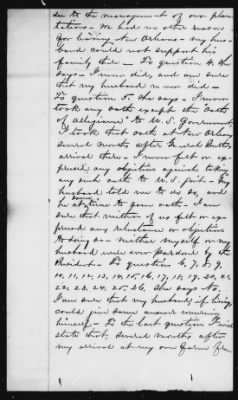 see to the management of our plan
tations - We had no other reason
for leaving New Orleans & my hus
band could not support his
family there - To question 4. she
says - I never did, and am sure
that my husband never did -
To question 5. she says - I never
took any oath except the oath
of allegiance to U.S. Government
I took that oath at New Orleans
several months after General Butler's
arrival there - I never felt or ex
pressed any objection against taking
any such oath to U.S. Gov't - My
husband told me to do so, and
he at time to same oath - I am
sure that neither of us felt or ex
pressed any reluctance or objection
to doing so - Neither myself or my
husband were ever pardoned by the
President - To question 6, 7, 8, 9,
10, 11, 12, 13, 14, 15, 16, 17, 18, 19, 20, 21,
22, 23, 24, 25, 26. She says No.
I am sure that my husband, if living,
could give same answer concerning
himself - To the last question I will
state that, several months after
my arrival at my own farm